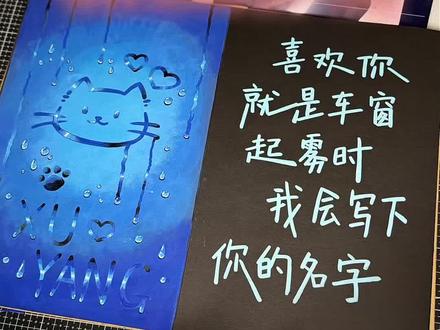 XU
YANG
喜欢你
就是车窗
起雾时
我会写下
你的名字